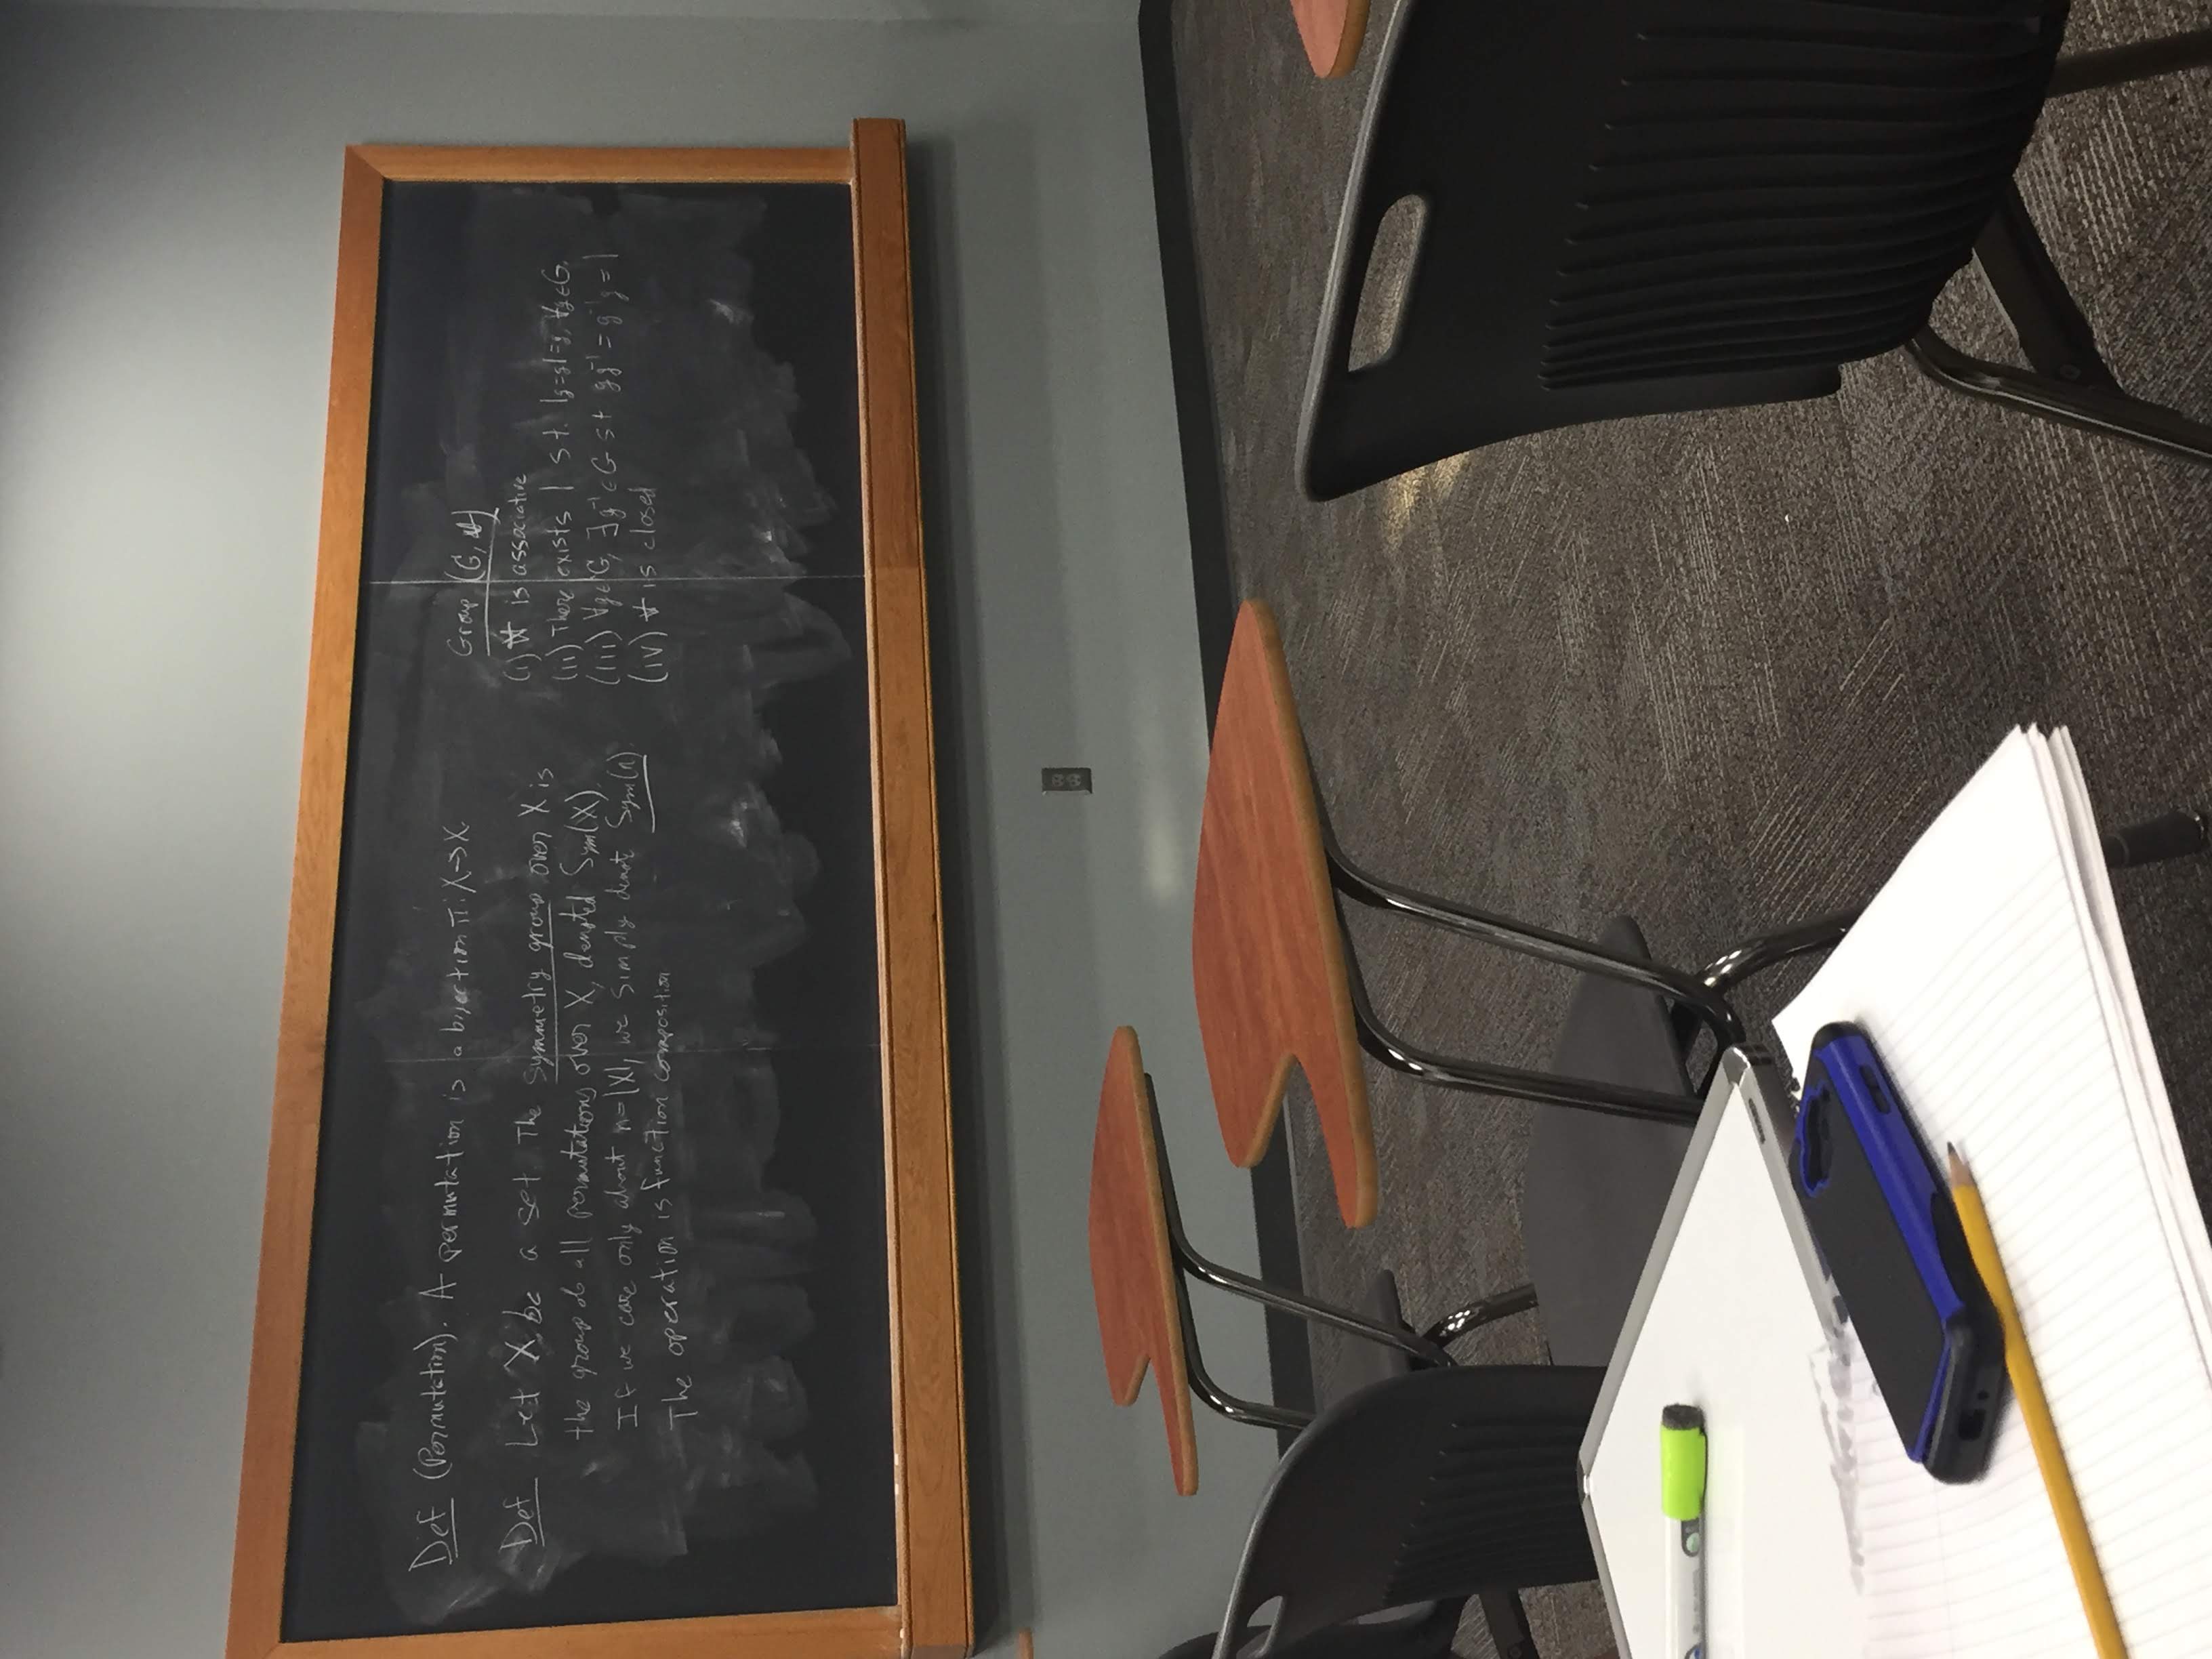 Def (Permutation). A permutation is a bijection π: X→X.
Def Let X be a set. The symmetry group over X is
the group of all permutations over X, denoted Sym(X).
If we care only about n=|X|, we simply denot Sym(n)
The operation is function composition
Group (G, *)
(i) * is associative
(ii) There exists 1 s.t. 1g=g1=g, ∀g∈G.
(iii) ∀g∈G, ∃g⁻¹∈G st gg⁻¹=g⁻¹g=1
(iv) * is closed